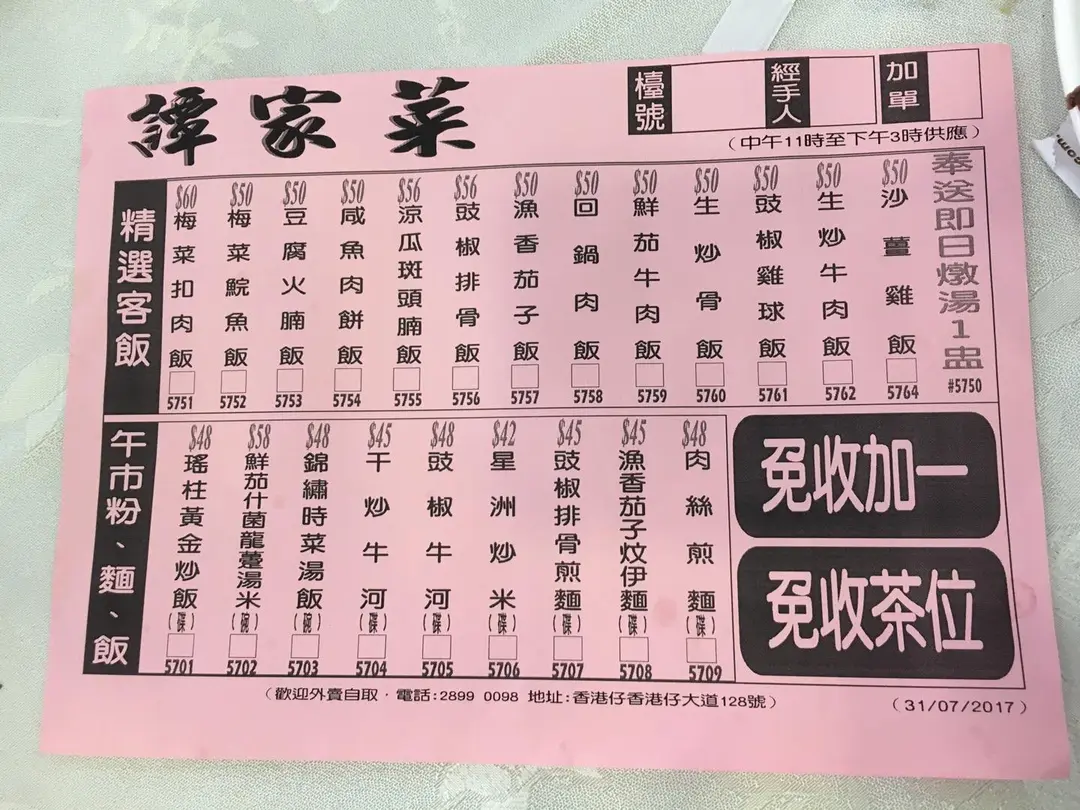 譚家菜
檯號
經手人
加單
(中午11時至下午3時供應)
精選客飯
$60 梅菜扣肉飯 5751
$50 梅菜鯇魚飯 5752
$50 豆腐火腩飯 5753
$50 咸魚肉餅飯 5754
$56 涼瓜斑頭腩飯 5755
$56 豉椒排骨飯 5756
$50 漁香茄子飯 5757
$50 回鍋肉飯 5758
$50 鮮茄牛肉飯 5759
$50 生炒骨飯 5760
$50 豉椒雞球飯 5761
$50 生炒牛肉飯 5762
$50 沙薑雞飯 5764
奉送即日燉湯1盅 #5750
午市粉、麵、飯
$48 瑤柱黃金炒飯(碟) 5701
$58 鮮茄什菌龍躉湯米(碗) 5702
$48 錦繡時菜湯飯(碗) 5703
$45 干炒牛河(碟) 5704
$48 豉椒牛河(碟) 5705
$42 星洲炒米(碟) 5706
$45 豉椒排骨煎麵(碟) 5707
$45 漁香茄子炆伊麵(碟) 5708
$48 肉絲煎麵(碟) 5709
免收加一
免收茶位
(歡迎外賣自取·電話:2899 0098 地址:香港仔香港仔大道128號)
(31/07/2017)